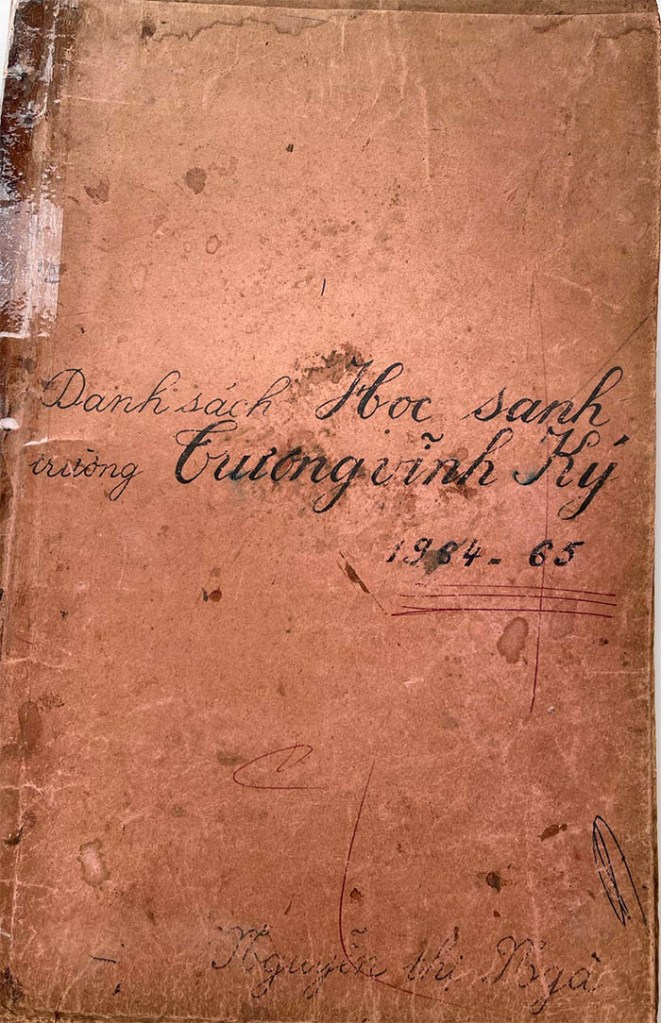 Danh sách Học sanh
trường Trương vĩnh Ký
1964 - 65
Nguyễn thị Ngà